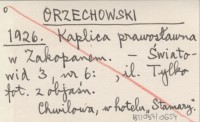 ORZECHOWSKI
1926. Kaplica prawosławna
w Zakopanem. — Świato-
wid 3, nr 6: , il. Tylko
fot. z objaśn.
Chwilowa, w hotelu „Stamary".